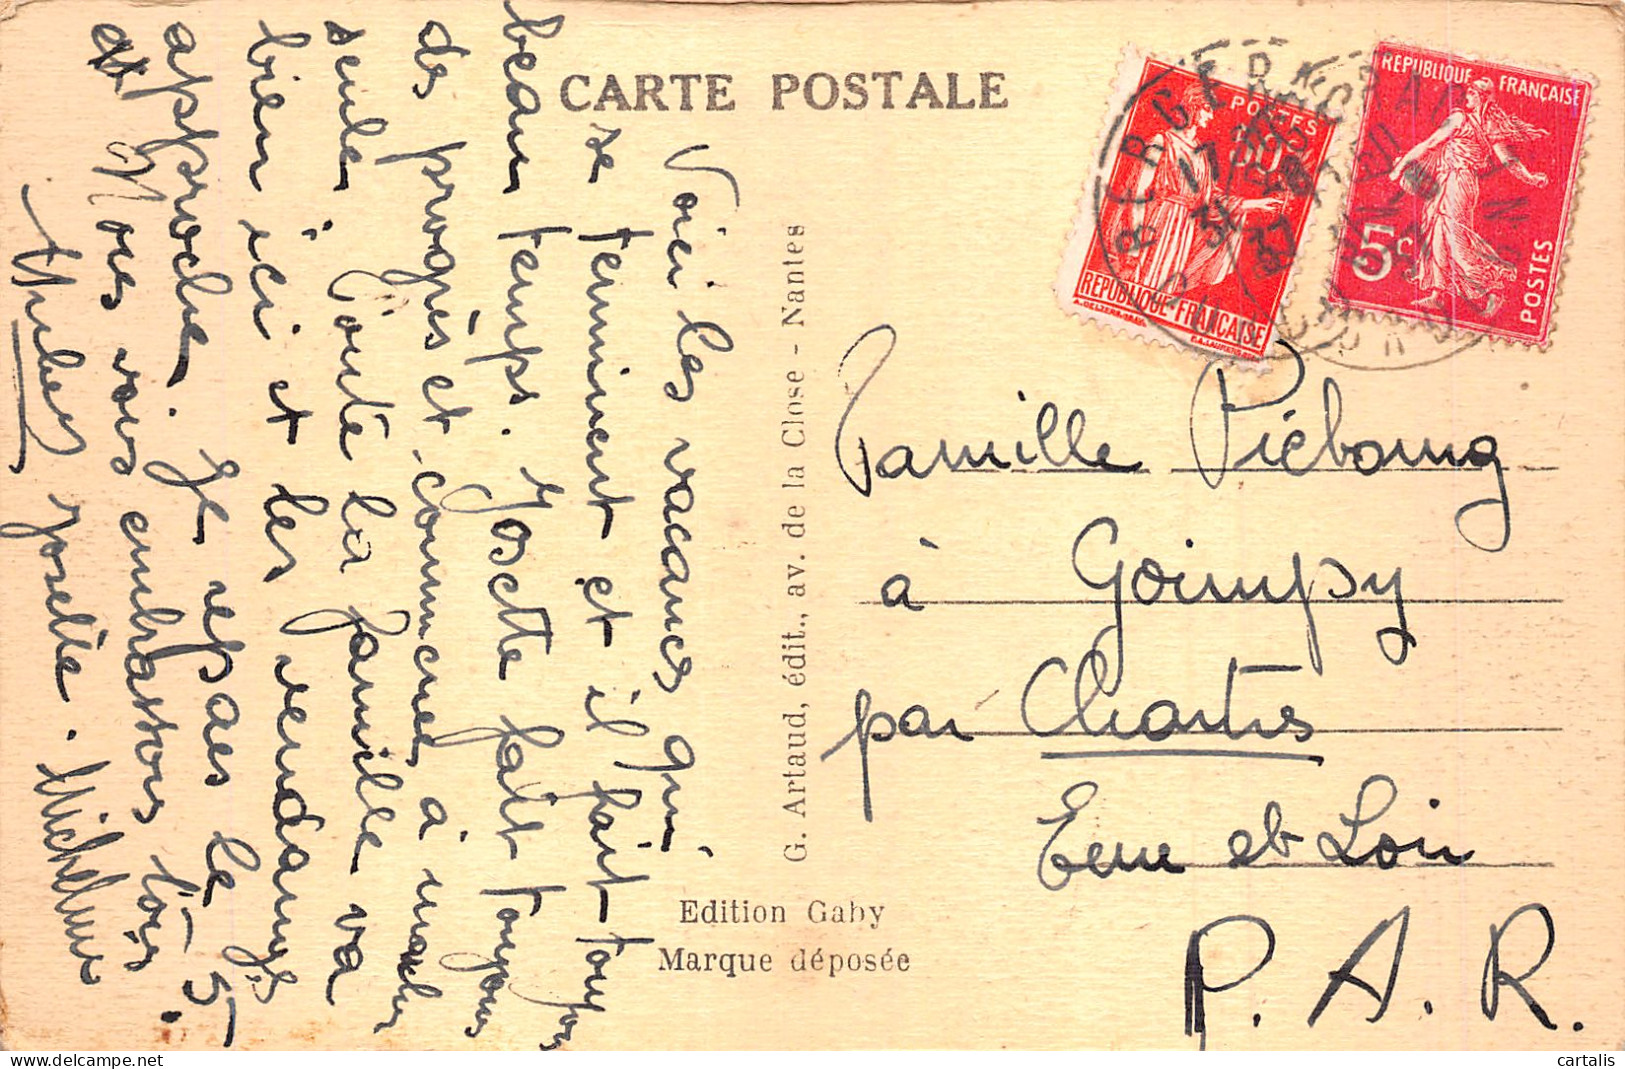 CARTE POSTALE
Voici les vacances qui
se terminent et il fait toujours
beau temps. Josette fait toujours
des progrès et commence à marcher
seule. Toute la famille va
bien ici et les vendanges
approche. Je repars le 5.
Nous vous embrassons tous
Huber Josette. Micheline
G. Artaud, édit., av. de la Close - Nantes
Edition Gaby
Marque déposée
BERGERAC
17
31
DORDOGNE
POSTES
50c
RÉPUBLIQUE-FRANÇAISE
RÉPUBLIQUE FRANÇAISE
5c
POSTES
Famille Piébourg
à Goimpy
par Chartres
Eure et Loir
P. A. R.
cartalis